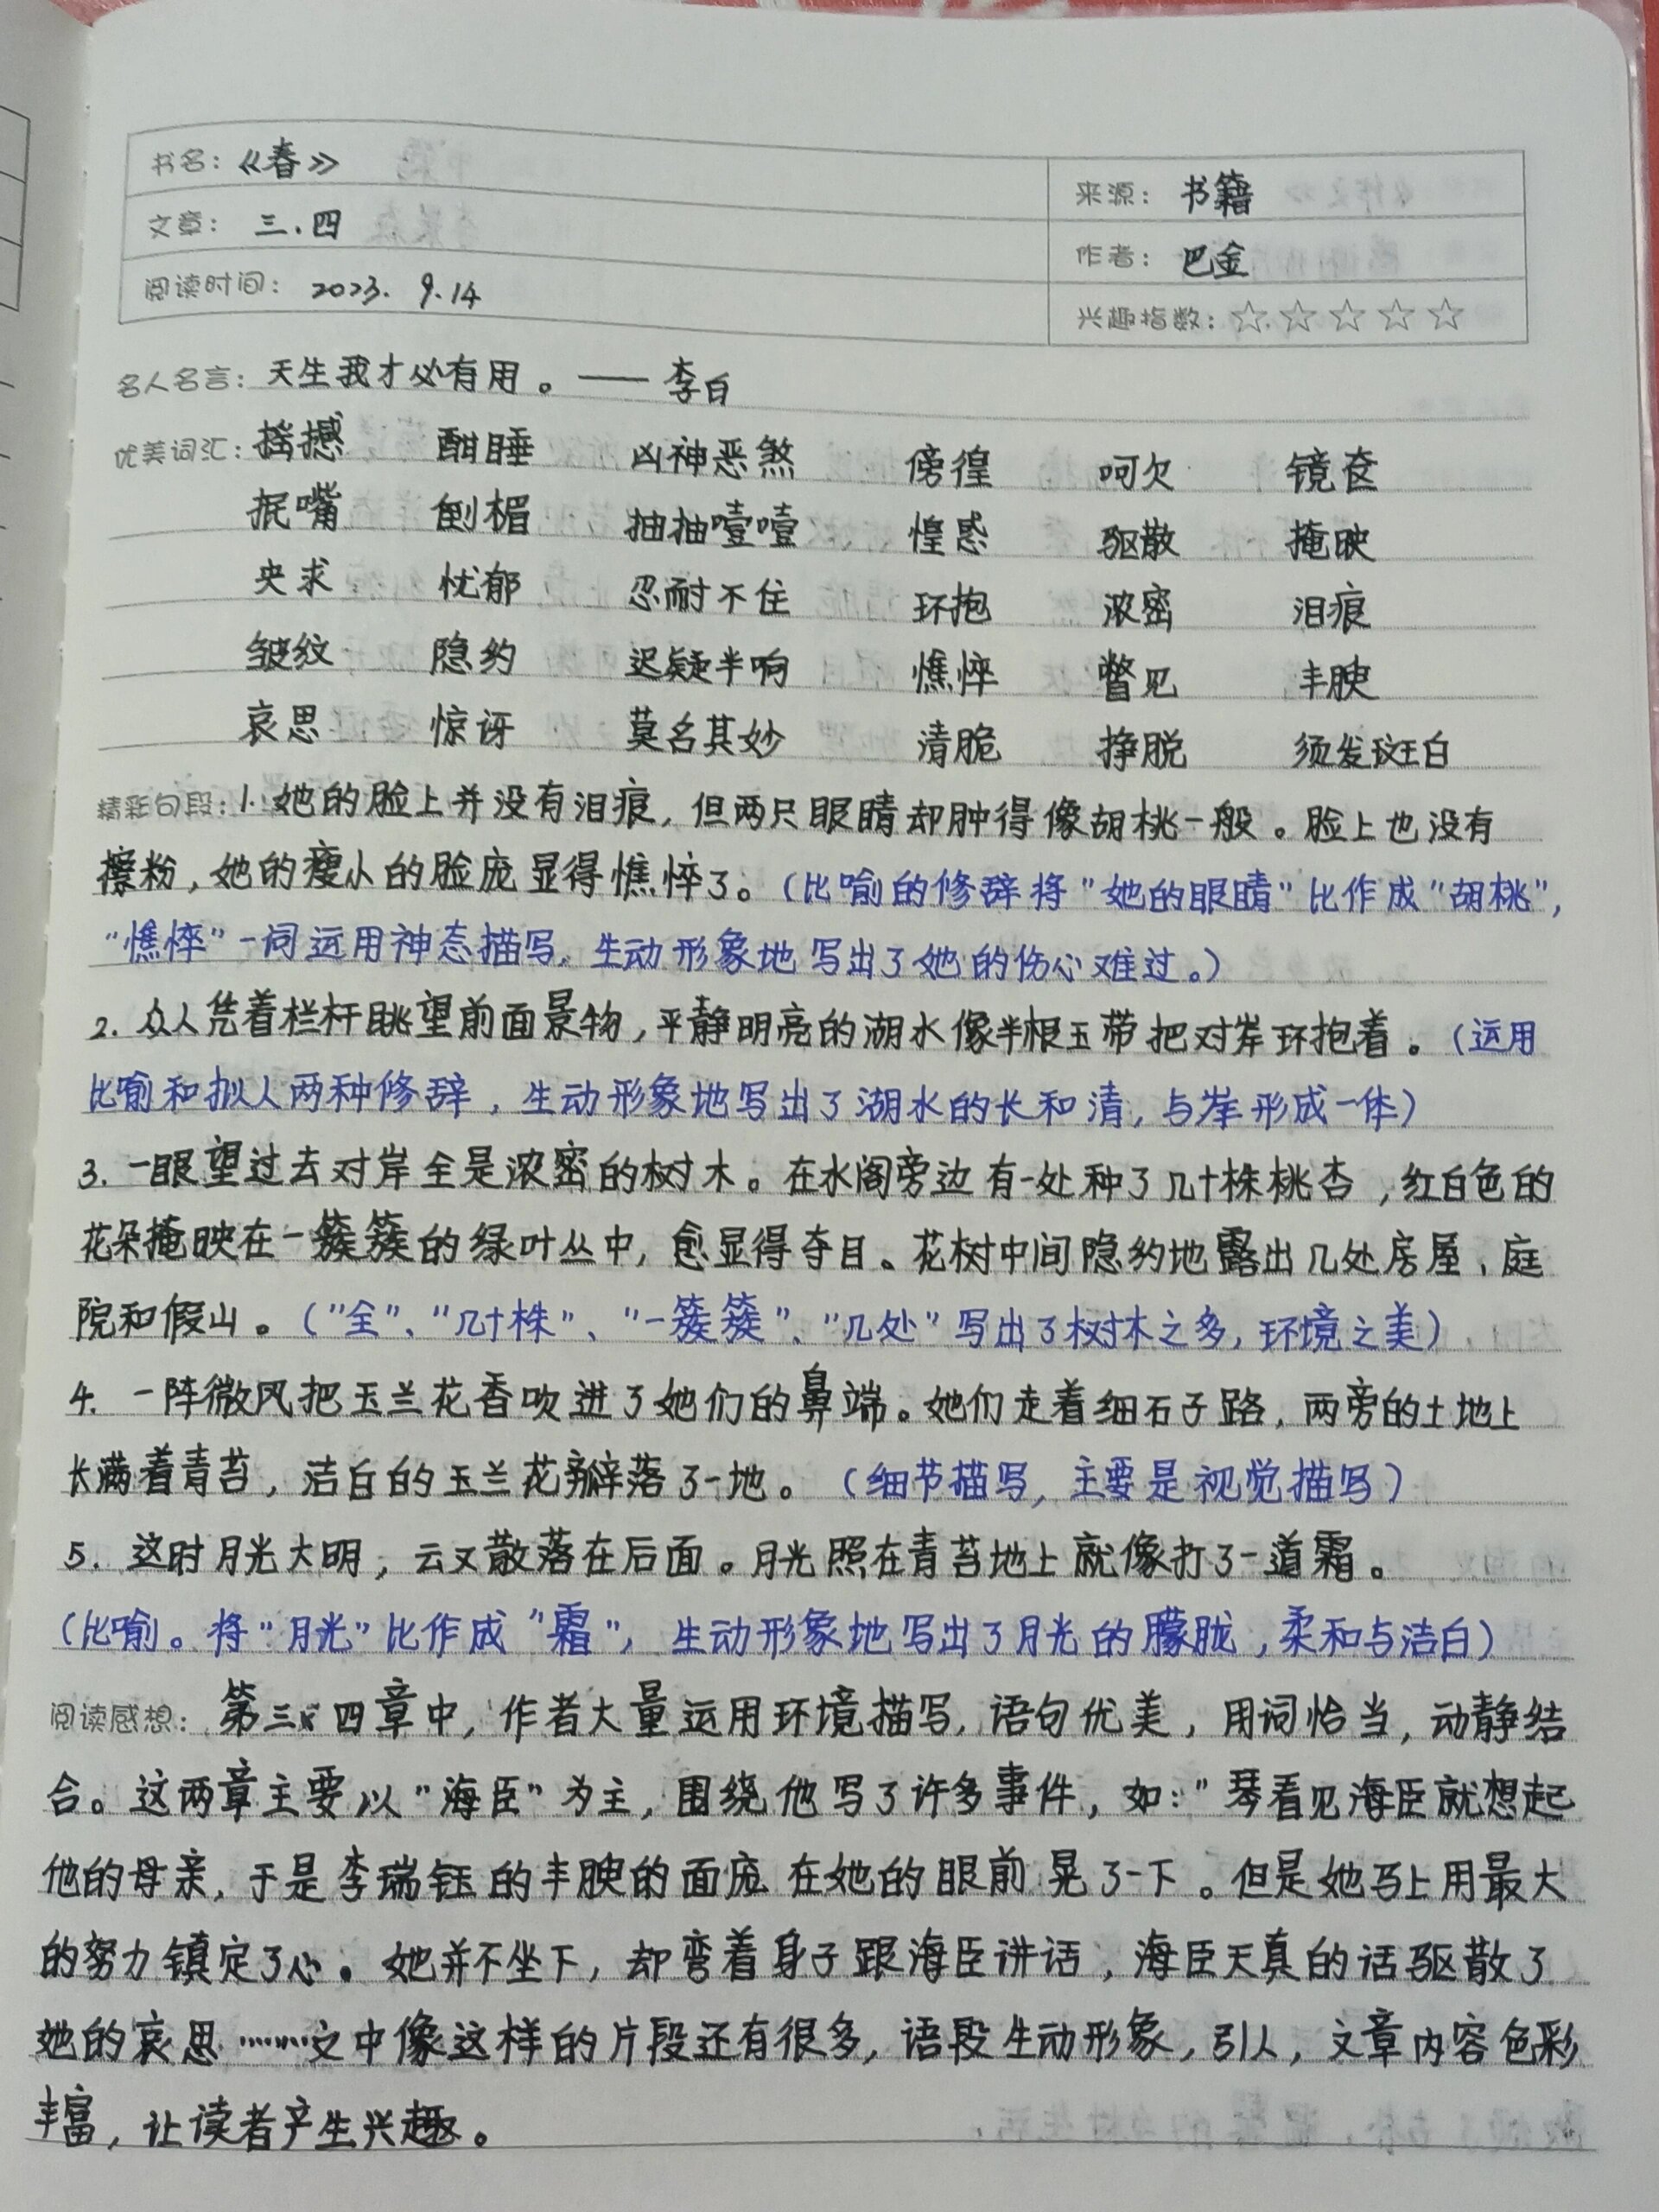 书名：《春》 来源：书籍
文章：三.四 作者：巴金
阅读时间：2023.9.14 兴趣指数：☆☆☆☆☆
名人名言：天生我才必有用。—— 李白
优美词汇：摇撼 酣睡 凶神恶煞 傍徨 呵欠 镜奁
抿嘴 倒楣 抽抽噎噎 惶惑 驱散 掩映
央求 忧郁 忍耐不住 环抱 浓密 泪痕
皱纹 隐约 迟疑半响 憔悴 瞥见 丰腴
哀思 惊讶 莫名其妙 清脆 挣脱 须发斑白
精彩句段：1.她的脸上并没有泪痕，但两只眼睛却肿得像胡桃一般。脸上也没有
擦粉，她的瘦小的脸庞显得憔悴了。（比喻的修辞将“她的眼睛”比作成“胡桃”，
“憔悴”一词运用神态描写，生动形象地写出了她的伤心难过。）
2.众人凭着栏杆眺望前面景物，平静明亮的湖水像半根玉带把对岸环抱着。（运用
比喻和拟人两种修辞，生动形象地写出了湖水的长和清，与岸形成一体）
3.一眼望过去对岸全是浓密的树木。在水阁旁边有一处种了几十株桃杏，红白色的
花朵掩映在一簇簇的绿叶丛中，愈显得夺目。花树中间隐约地露出几处房屋、庭
院和假山。（“全”、“几十株”、“一簇簇”、“几处”写出了树木之多，环境之美）
4.一阵微风把玉兰花香吹进了她们的鼻端。她们走着细石子路，两旁的土地上
长满着青苔，洁白的玉兰花瓣落了一地。（细节描写，主要是视觉描写）
5.这时月光大明，云又散落在后面。月光照在青苔地上就像打了一道霜。
（比喻。将“月光”比作成“霜”，生动形象地写出了月光的朦胧，柔和与洁白）
阅读感想：第三、四章中，作者大量运用环境描写，语句优美，用词恰当，动静结
合。这两章主要以“海臣”为主，围绕他写了许多事件，如：“琴看见海臣就想起
他的母亲，于是李瑞钰的丰腴的面庞在她的眼前晃了一下。但是她马上用最大
的努力镇定了心。她并不坐下，却弯着身子跟海臣讲话，海臣天真的话驱散了
她的哀思……文中像这样的片段还有很多，语段生动形象，引人，文章内容色彩
丰富，让读者产生兴趣。